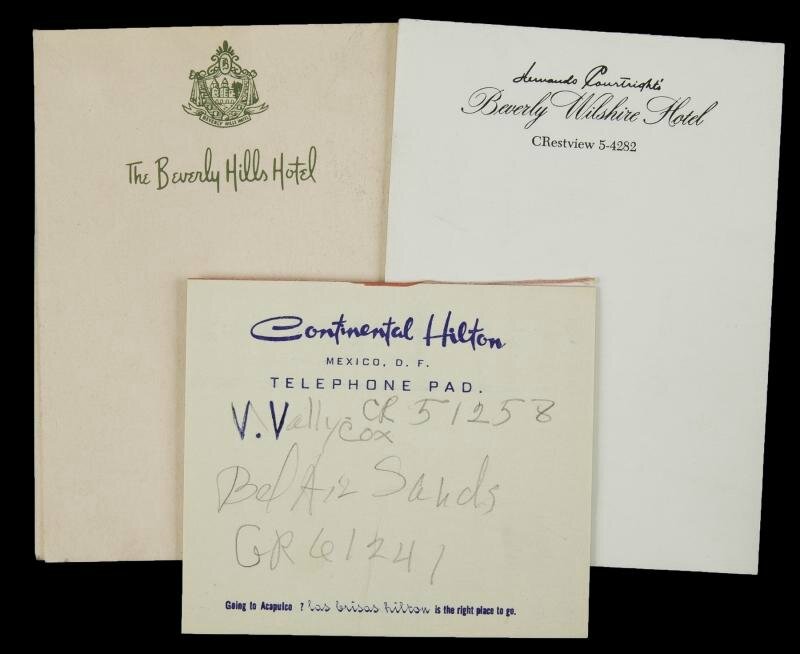 BEVERLY HILLS HOTEL
The Beverly Hills Hotel
Hernando Courtright's
Beverly Wilshire Hotel
CRestview 5-4282
Continental Hilton
MEXICO, D. F.
TELEPHONE PAD.
V.V Wally CR 51258
Cox
Bel Air Sands
GR 61241
Going to Acapulco ? las brisas hilton is the right place to go.